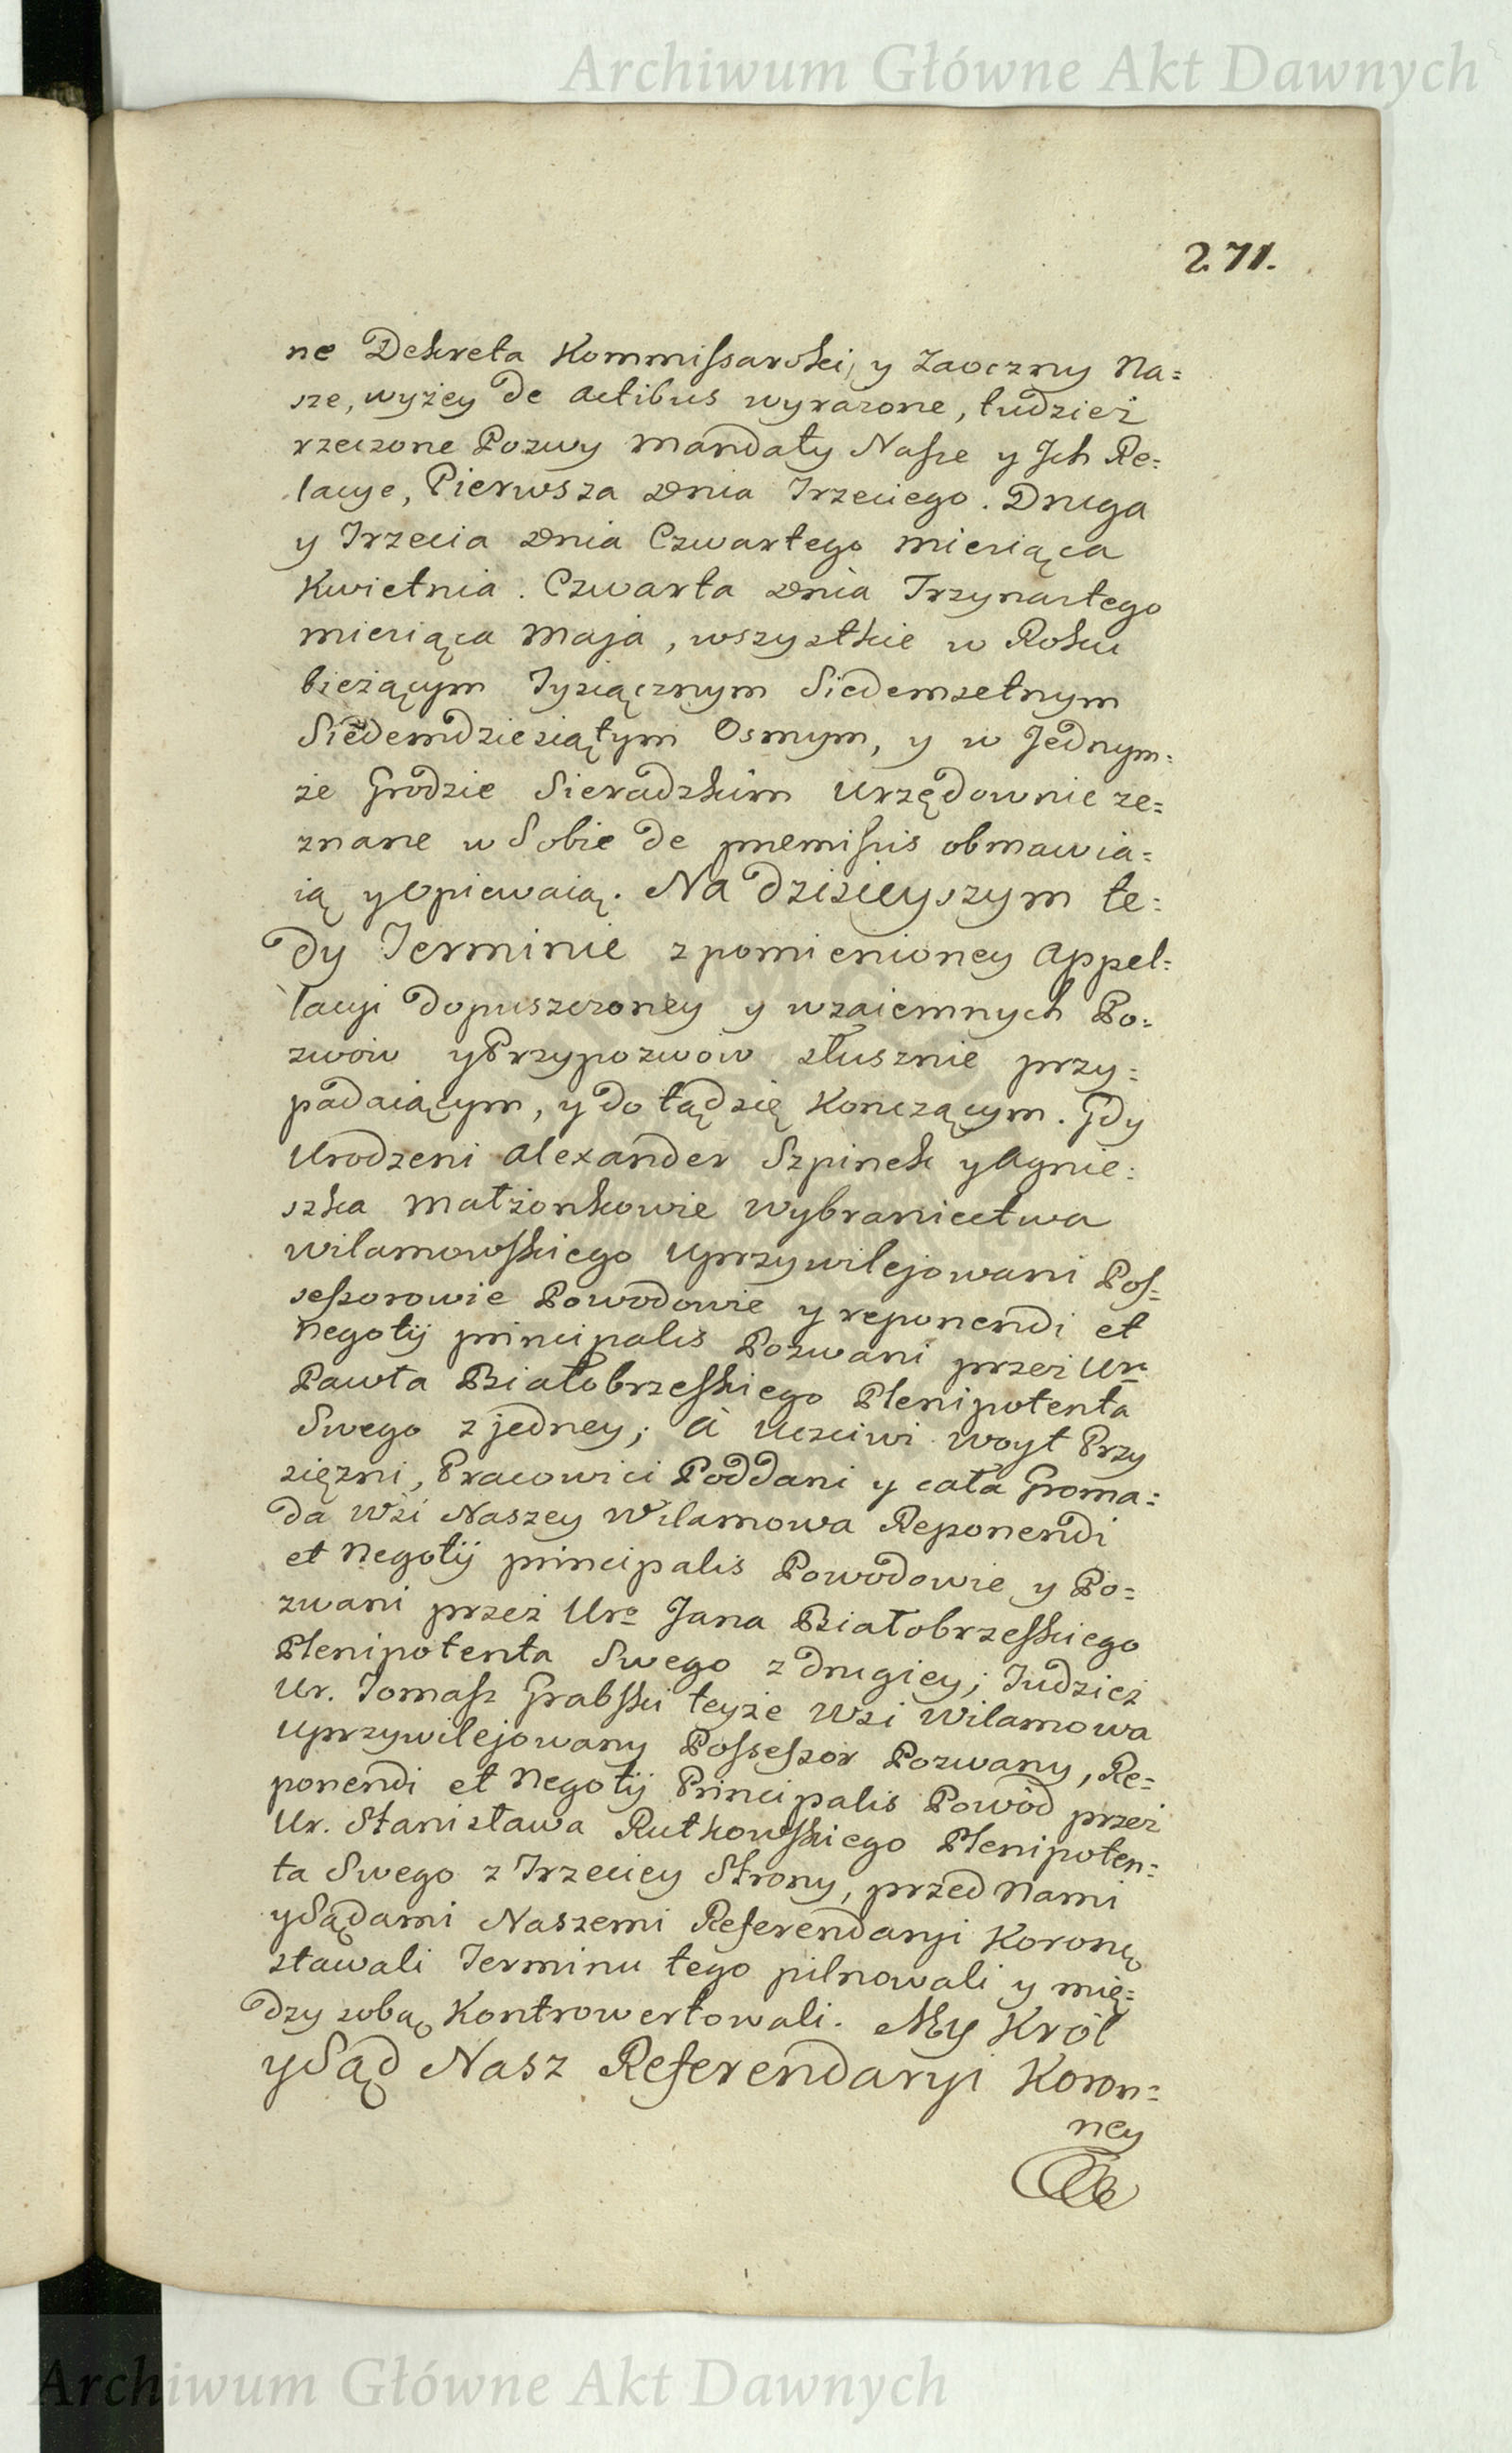 Archiwum Główne Akt Dawnych
271.
ne Dekreta Kommissarski, y Zaoczny Na=
sze, wyżey de Actibus wyrazone, tudzież
rzeczone Pozwy Mandaty Nasze y Ich Re=
lacye, Pierwsza Dnia Trzeciego. Druga
y Trzecia Dnia Czwartego Miesiąca
Kwietnia. Czwarta Dnia Trzynastego
Miesiąca Maja, wszystkie w Roku
bieżącym Tysiącznym Siedemsetnym
Siedemdziesiątym Osmym, y w Jednym=
że Grodzie Sieradzkim Urzędownie ze=
znane w Sobie de premissis obmawia=
ią y Opiewaią. Na dzisieyszym te=
dy Terminie z pomienioney Appel=
lacyi dopuszczoney y wzaiemnych Po=
zwow y Przypozwow słusznie przy=
padaiącym, y do tąd się Konczącym. Gdy
Urodzeni Alexander Szpinek y Agnie=
szka Małżonkowie Wybraniectwa
Wilamowskiego Uprzywilejowani Pos=
sessorowie Powodowie y reponendi et
Negotij principalis Pozwani przez Ur.
Pawła Białobrzeskiego Plenipotenta
Swego z jedney; A Uczciwi Woyt Przy
sięzni, Pracowici Poddani y cała Groma=
da Wsi Naszey Wilamowa Reponendi
et Negotij principalis Powodowie y Po=
zwani przez Uro Jana Białobrzeskiego
Plenipotenta Swego z drugiey; Tudzież
Ur. Tomasz Grabski teyże Wsi Wilamowa
Uprzywilejowany Possessor Pozwany, Re=
ponendi et Negotij Principalis Powód przez
Ur. Stanisława Rutkowskiego Plenipoten=
ta Swego z Trzeciey Strony, przed Nami
y Sądami Naszemi Referendaryi Koronę
stawali Terminu tego pilnowali y mię=
dzy sobą Kontrowertowali. My Król
y Sąd Nasz Referendaryi Koron=
ney
Archiwum Główne Akt Dawnych